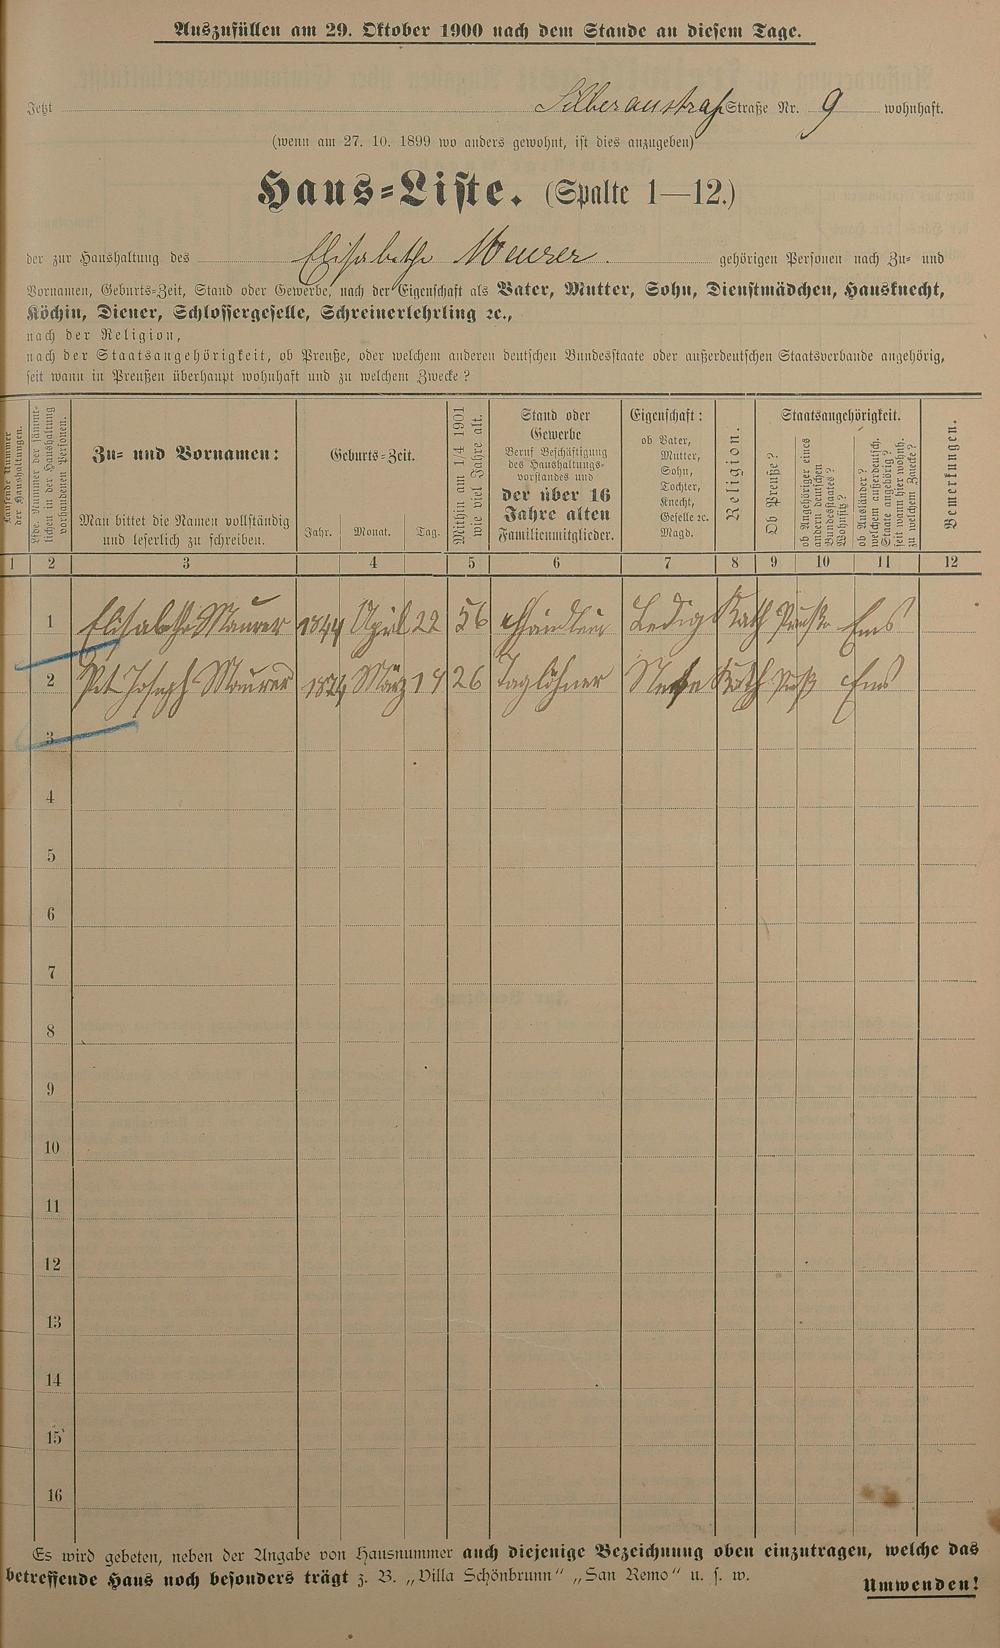 Auszufüllen am 29. Oktober 1900 nach dem Stande an diesem Tage.
Jetzt Silberaustraß Straße Nr. 9 wohnhaft.
(wenn am 27. 10. 1899 wo anders gewohnt, ist dies anzugeben)
Haus-Liste. (Spalte 1—12.)
der zur Haushaltung des Elisabethe Meurer. gehörigen Personen nach Zu- und
Vornamen, Geburts-Zeit, Stand oder Gewerbe, nach der Eigenschaft als Vater, Mutter, Sohn, Dienstmädchen, Hausknecht,
Köchin, Diener, Schlossergeselle, Schreinerlehrling ꝛc.,
nach der Religion,
nach der Staatsangehörigkeit, ob Preuße, oder welchem anderen deutschen Bundesstaate oder außerdeutschen Staatsverbande angehörig,
seit wann in Preußen überhaupt wohnhaft und zu welchem Zwecke?
Laufende Nummer der Haushaltungen.
Lfde. Nummer der sämmtlichen in der Haushaltung vorhandenen Personen.
Zu- und Vornamen:
Man bittet die Namen vollständig
und leserlich zu schreiben.
Geburts-Zeit.
Jahr. Monat. Tag.
Mithin am 1/4 1901 wie viel Jahre alt.
Stand oder
Gewerbe
Beruf Beschäftigung
des Haushaltungs-
vorstandes und
der über 16
Jahre alten
Familienmitglieder.
Eigenschaft:
ob Vater,
Mutter,
Sohn,
Tochter,
Knecht,
Geselle ꝛc.
Magd.
Religion.
Staatsangehörigkeit.
Ob Preuße?
ob Angehöriger eines andern deutschen Bundesstaates? Wohnsitz?
ob Ausländer? welchem außerdeutsch. Staate angehörig? seit wann hier wohnh. zu welchem Zwecke?
Bemerkungen.
1 2 3 4 5 6 7 8 9 10 11 12
1 Elisabethe Maurer 1844 April 22 56 Händlerin Ledig Kath Preuße Ems
2 Pet Joseph Maurer 1874 März 19 26 Taglöhner Neffe Kath Preuß Ems
3
4
5
6
7
8
9
10
11
12
13
14
15
16
Es wird gebeten, neben der Angabe von Hausnummer auch diejenige Bezeichnung oben einzutragen, welche das
betreffende Haus noch besonders trägt z. B. „Villa Schönbrunn“ „San Remo“ u. s. w.
Umwenden!